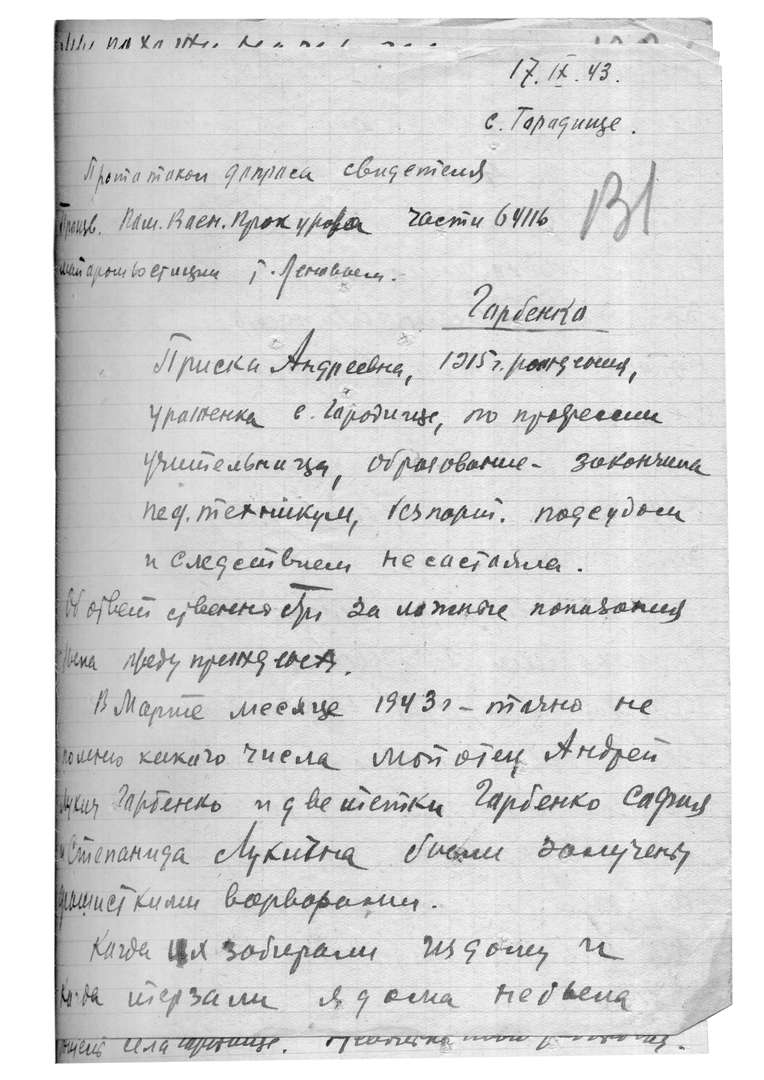 17.IX.43.
с. Гарадище.
Протаткол допроса свидетеля
Произв. Пам. Ваен. Прокурора части 64116
юстиции г.
Гарбенка
Приска Андреевна, 1915 г. рождения,
уроженка с. Гародище, по профессии
учительница, образование - закончила
пед. техникум, безпарт. подсудом
и следствием несастаяла.
Об ответственности за ложные показания
предупреждена.
В Марте месяце 1943 г - точно не
помню какого числа мой отец Андрей
Лукич Гарбенко и две тетки Гарбенко София
и Степанида Лукична были замучены
фашисткими варварами.
Когда их забирали из дому и
Когда терзали я дома небыла
села